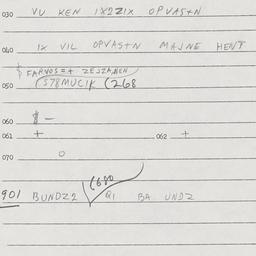 030 VU KEN IXZZIX OPVASTN
040 IX VIL OPVASTN MAJNE HENT
$ FARVOS=+ ZEJZANEN
050 (S78MUCIK (268
060 $ —
061 + 062 +
070 O
(680
901 BUNDZ2 QI BA UNDZ